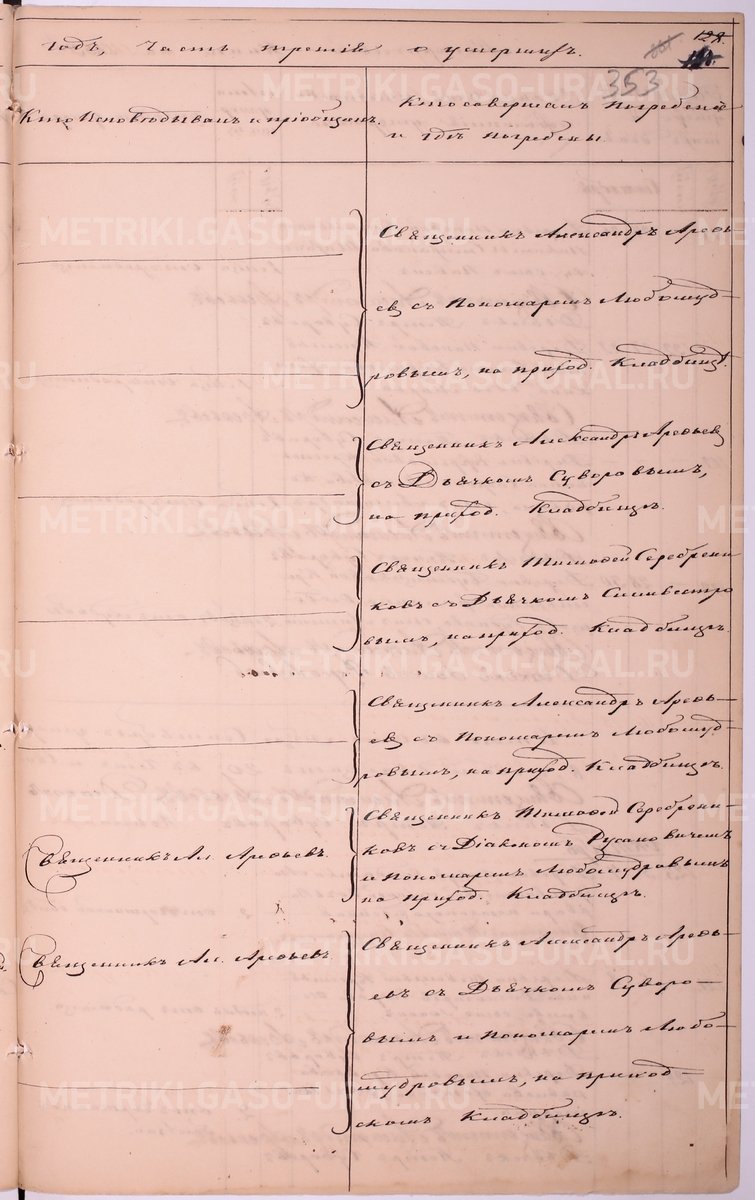 годъ, часть третія о умершихъ.
128.
353
Кто исповѣдывалъ и пріобщалъ.
Кто совершалъ погребеніе
и гдѣ погребены.
Священникъ Александръ Арефь
евъ съ Пономаремъ Любомуд
ровымъ, на приход. Кладбищѣ.
Священникъ Александръ Арефьевъ
съ Дьячкомъ Суворовымъ,
на приход. Кладбищѣ.
Священникъ Тимофей Серебрени
ковъ съ Дьячкомъ Силивестро
вымъ, на приход. Кладбищѣ.
Священникъ Александръ Арефь-
евъ съ Пономаремъ Любомуд-
ровымъ, на приход. Кладбищѣ.
Священникъ Ал. Арефьевъ.
Священникъ Тимофей Серебрени-
ковъ съ Діакономъ Русановичемъ
и Пономаремъ Любомудровымъ
на приход. Кладбищѣ.
Священникъ Ал. Арефьевъ
Священникъ Александръ Арефь-
евъ съ Дьячкомъ Суворо-
вымъ и Пономаремъ Любо-
мудровымъ, на приход-
скомъ Кладбищѣ.
METRIKI.GASO-URAL.RU